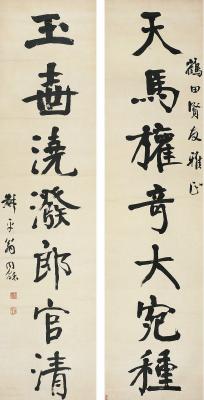 鶴田賢友雅正
天馬權奇大宛種
玉壺澆潑郎官清
叔平翁同龢